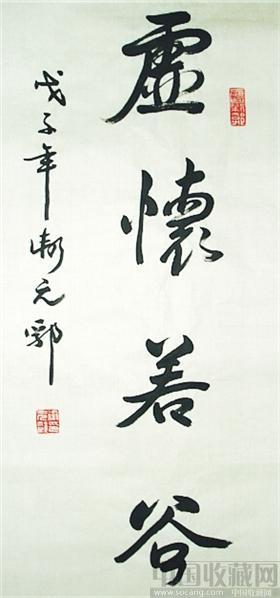 虛懷若谷
戊子年 元
中国收藏网
www.socang.com 中国收藏网